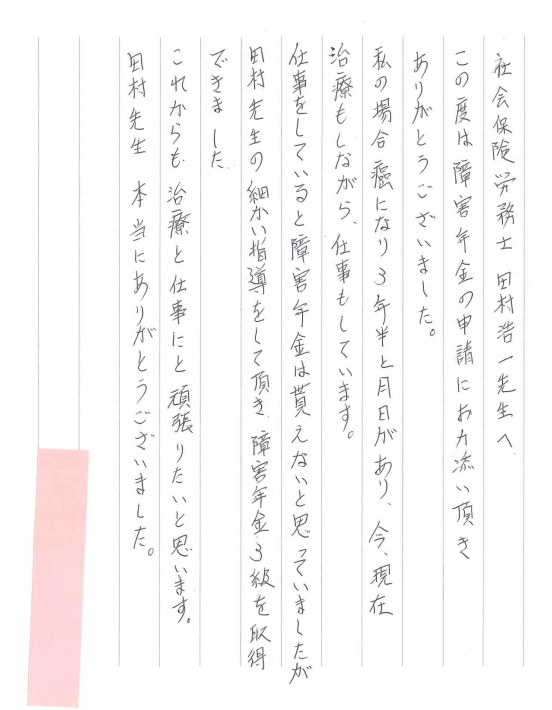 社会保険労務士 田村浩一先生へ
この度は障害年金の申請にお力添い頂き
ありがとうございました。
私の場合癌になり3年半と月日があり、今、現在
治療もしながら、仕事もしています。
仕事をしていると障害年金は貰えないと思っていましたが
田村先生の細かい指導をして頂き、障害年金3級を取得
できました。
これからも、治療と仕事にと頑張りたいと思います。
田村先生 本当にありがとうございました。